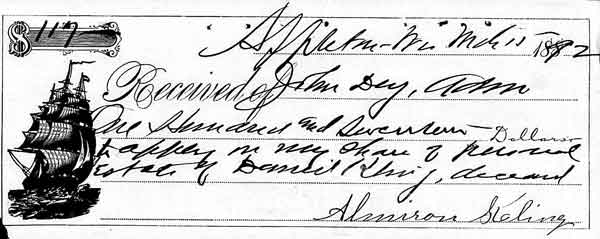 $ 117
Appleton Wis Mch 15 1882
Received of John Dey, Adm
One Hundred and Seventeen Dollars
to apply on my share of personal
estate of Daniel King, deceasd
Almiron Keling